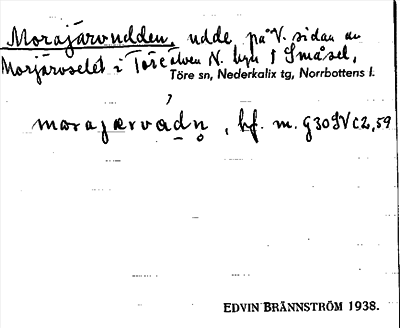 Morajärvudden, udde på V. sidan av
Morjärvselet i Töreälven N. byn Småsel,
Töre sn, Nederkalix tg, Norrbottens l.
bf. m. G30SVc2,59
EDVIN BRÄNNSTRÖM 1938.